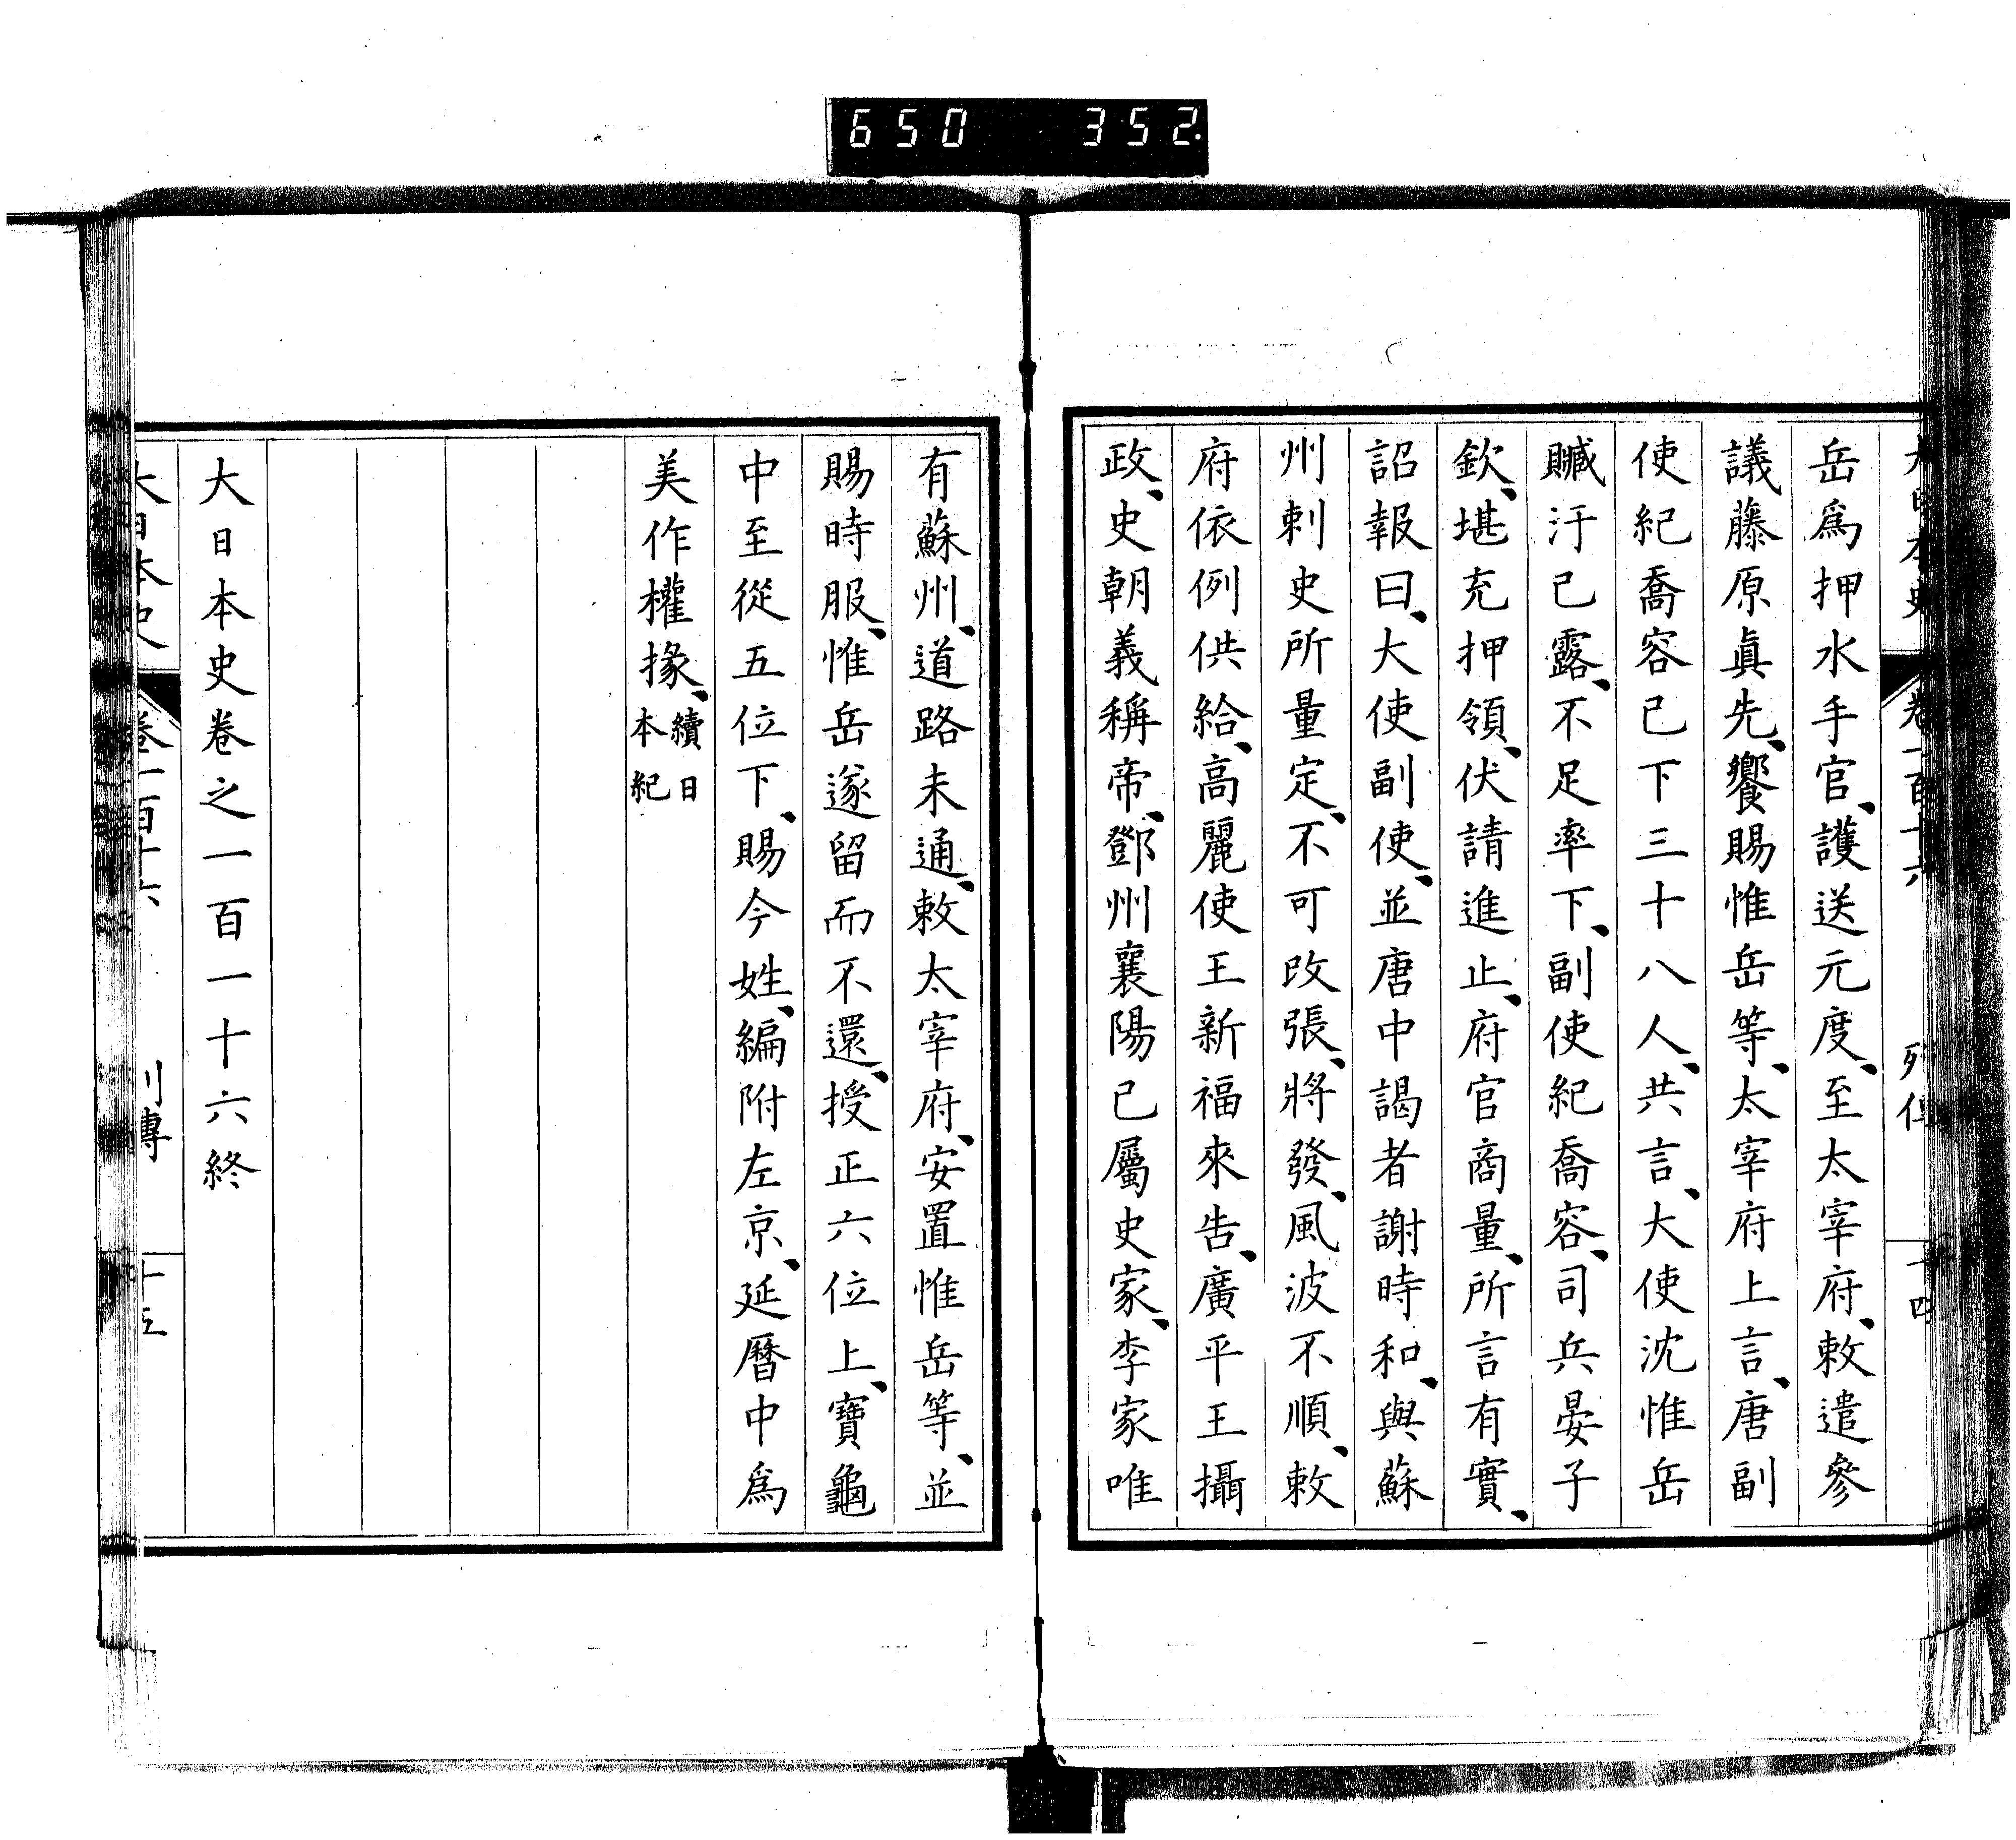 650 352.
岳爲押水手官、護送元度、至太宰府、敕遣參
議藤原眞先、饗賜惟岳等、太宰府上言、唐副
使紀喬容已下三十八人、共言、大使沈惟岳
贓汙已露、不足率下、副使紀喬容、司兵晏子
欽、堪充押領、伏請進止、府官商量、所言有實、
詔報曰、大使副使、並唐中謁者謝時和、與蘇
州刺史所量定、不可改張、將發、風波不順、敕
府依例供給、高麗使王新福來告、廣平王攝
政、史朝義稱帝、鄧州襄陽已屬史家、李家唯
有蘇州、道路未通、敕太宰府、安置惟岳等、並
賜時服、惟岳遂留而不還、授正六位上、寶龜
中至從五位下、賜今姓、編附左京、延曆中爲
美作權掾、續日本紀
大日本史卷之一百一十六終